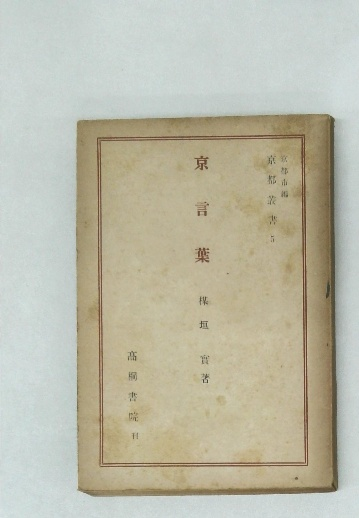 京都市編
京都叢書 5
京言葉
楳垣實著
高桐書院刊